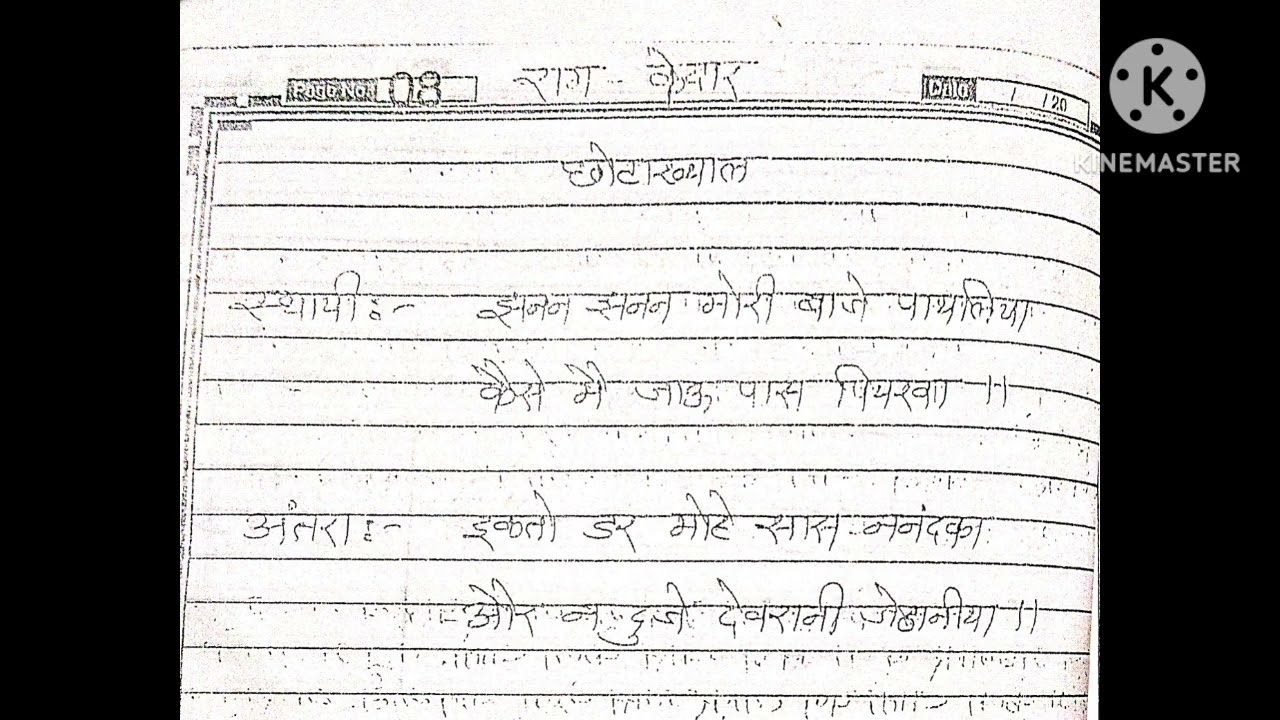 राग - केदार
Page No. 08
/ /20
KINEMASTER
छोटाख्याल
स्थायी :- झनन झनन मोरी बाजे पायलिया
कैसे मै जाऊ पास पियरवा ।।
अंतरा :- इकतो डर मोहे सास ननंदका
और न दुजे देवरानी जेठानीया ।।